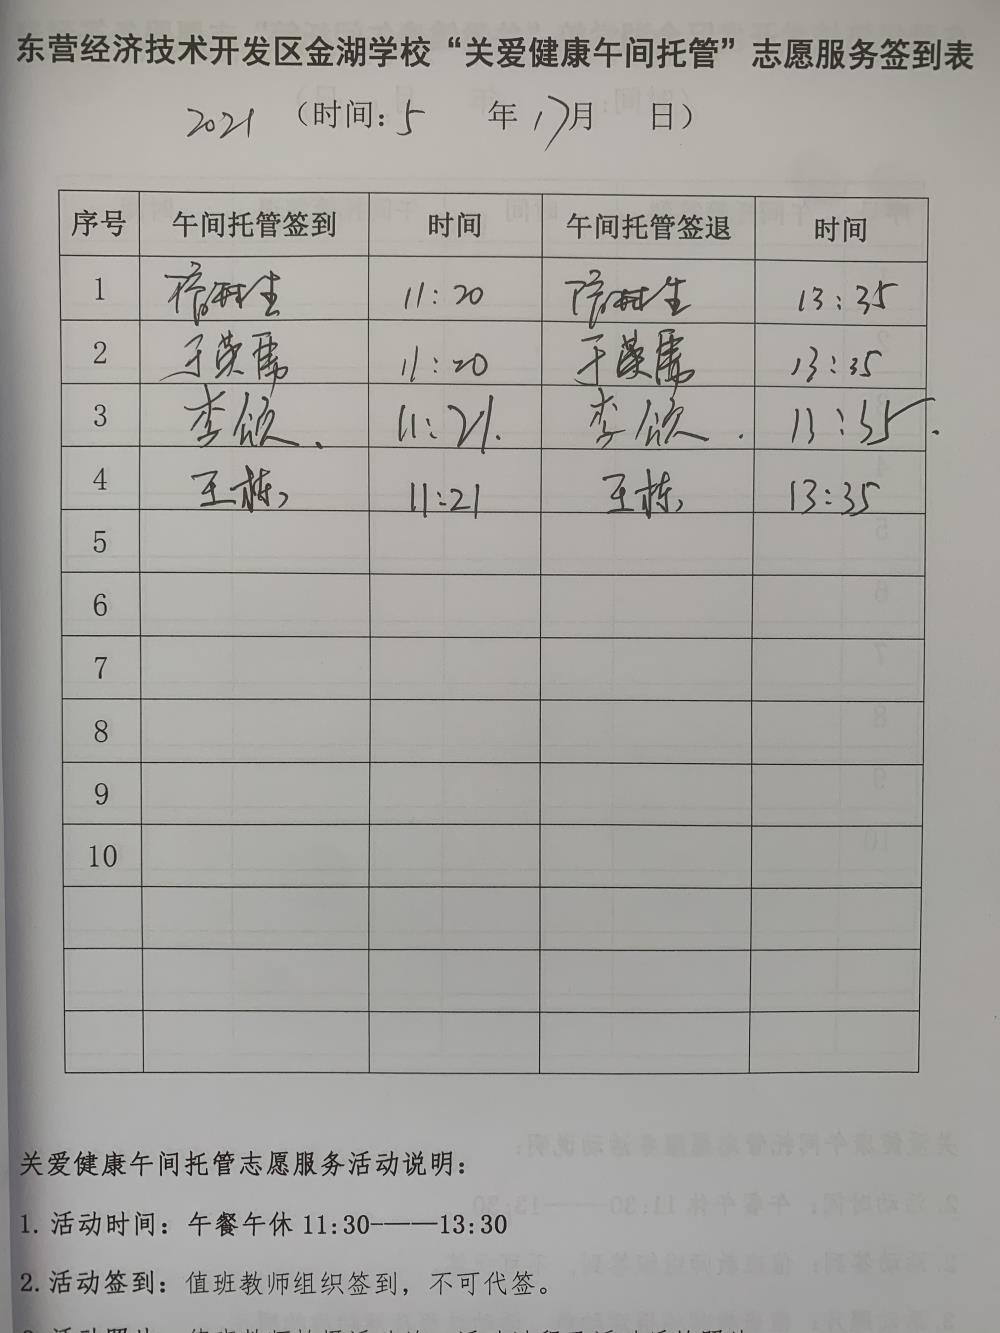 东营经济技术开发区金湖学校“关爱健康午间托管”志愿服务签到表
2021 （时间：5 年 17月 日）
序号 午间托管签到 时间 午间托管签退 时间
1 11:20 13:35
2 于 11:20 于 13:35
3 李颂. 11:21. 李颂. 13:35.
4 王栋 11:21 王栋 13:35
5
6
7
8
9
10
关爱健康午间托管志愿服务活动说明：
1.活动时间：午餐午休 11:30———13:30
2.活动签到：值班教师组织签到，不可代签。